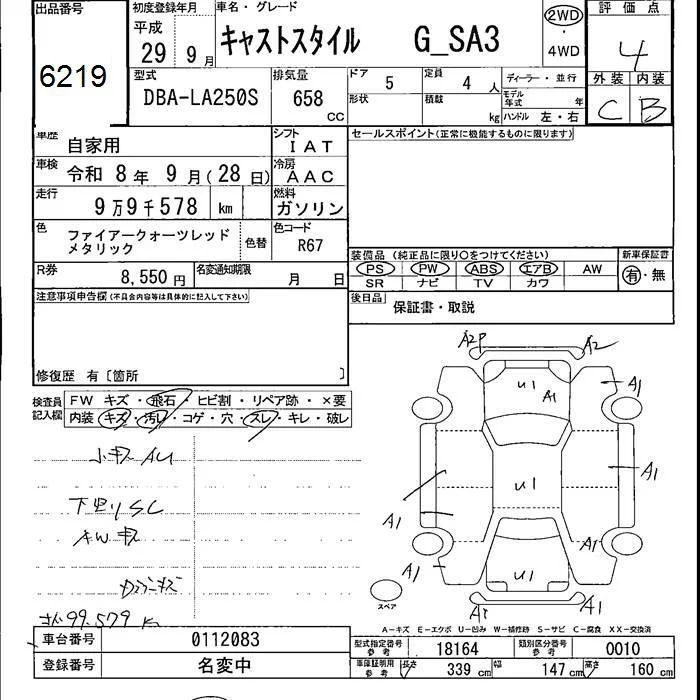 出品番号
6219
初度登録年月
平成
29 9月
車名・グレード
キャストスタイル G_SA3
2WD
・
4WD
評価点
4
外装 内装
C B
型式
DBA-LA250S
排気量
658
CC
ドア
5
定員
4 人
形状
積載
kg
ディーラー・並行
モデル年式 年
ハンドル 左・右
車歴
自家用
シフト
IAT
車検
令和 8年 9月(28日)
冷房
AAC
走行
9万9千578 km
燃料
ガソリン
色
ファイアークォーツレッド
メタリック
色替
色コード
R67
R券
8,550円
名変通知期限
月 日
セールスポイント(正常に機能するものに限ります)
装備品 (純正品に限り○をつけてください)
PS PW ABS エアB AW
SR ナビ TV カワ
新車保証書
有・無
後日品
保証書・取説
注意事項申告欄(不具合内容等は具体的に記入して下さい)
修復歴 有〔箇所 〕
検査員
記入欄
FW キズ・飛石・ヒビ割・リペア跡・×要
内装 キズ・汚レ・コゲ・穴・スレ・キレ・破レ
小キズAU
下廻りSC
AWキズ
99.579 K
A2P
A2
U1
A1
A1
A1
U1
A1
A1
A1
A1
U1
A1
A1
スペア
A-キズ E-エクボ U-凹み W-補修跡 S-サビ C-腐食 XX-交換済
車台番号
0112083
登録番号
名変中
型式指定番号
参考
18164
類別区分番号
参考
0010
車庫証明用
参考
長さ
339 cm
幅
147 cm
高さ
160 cm